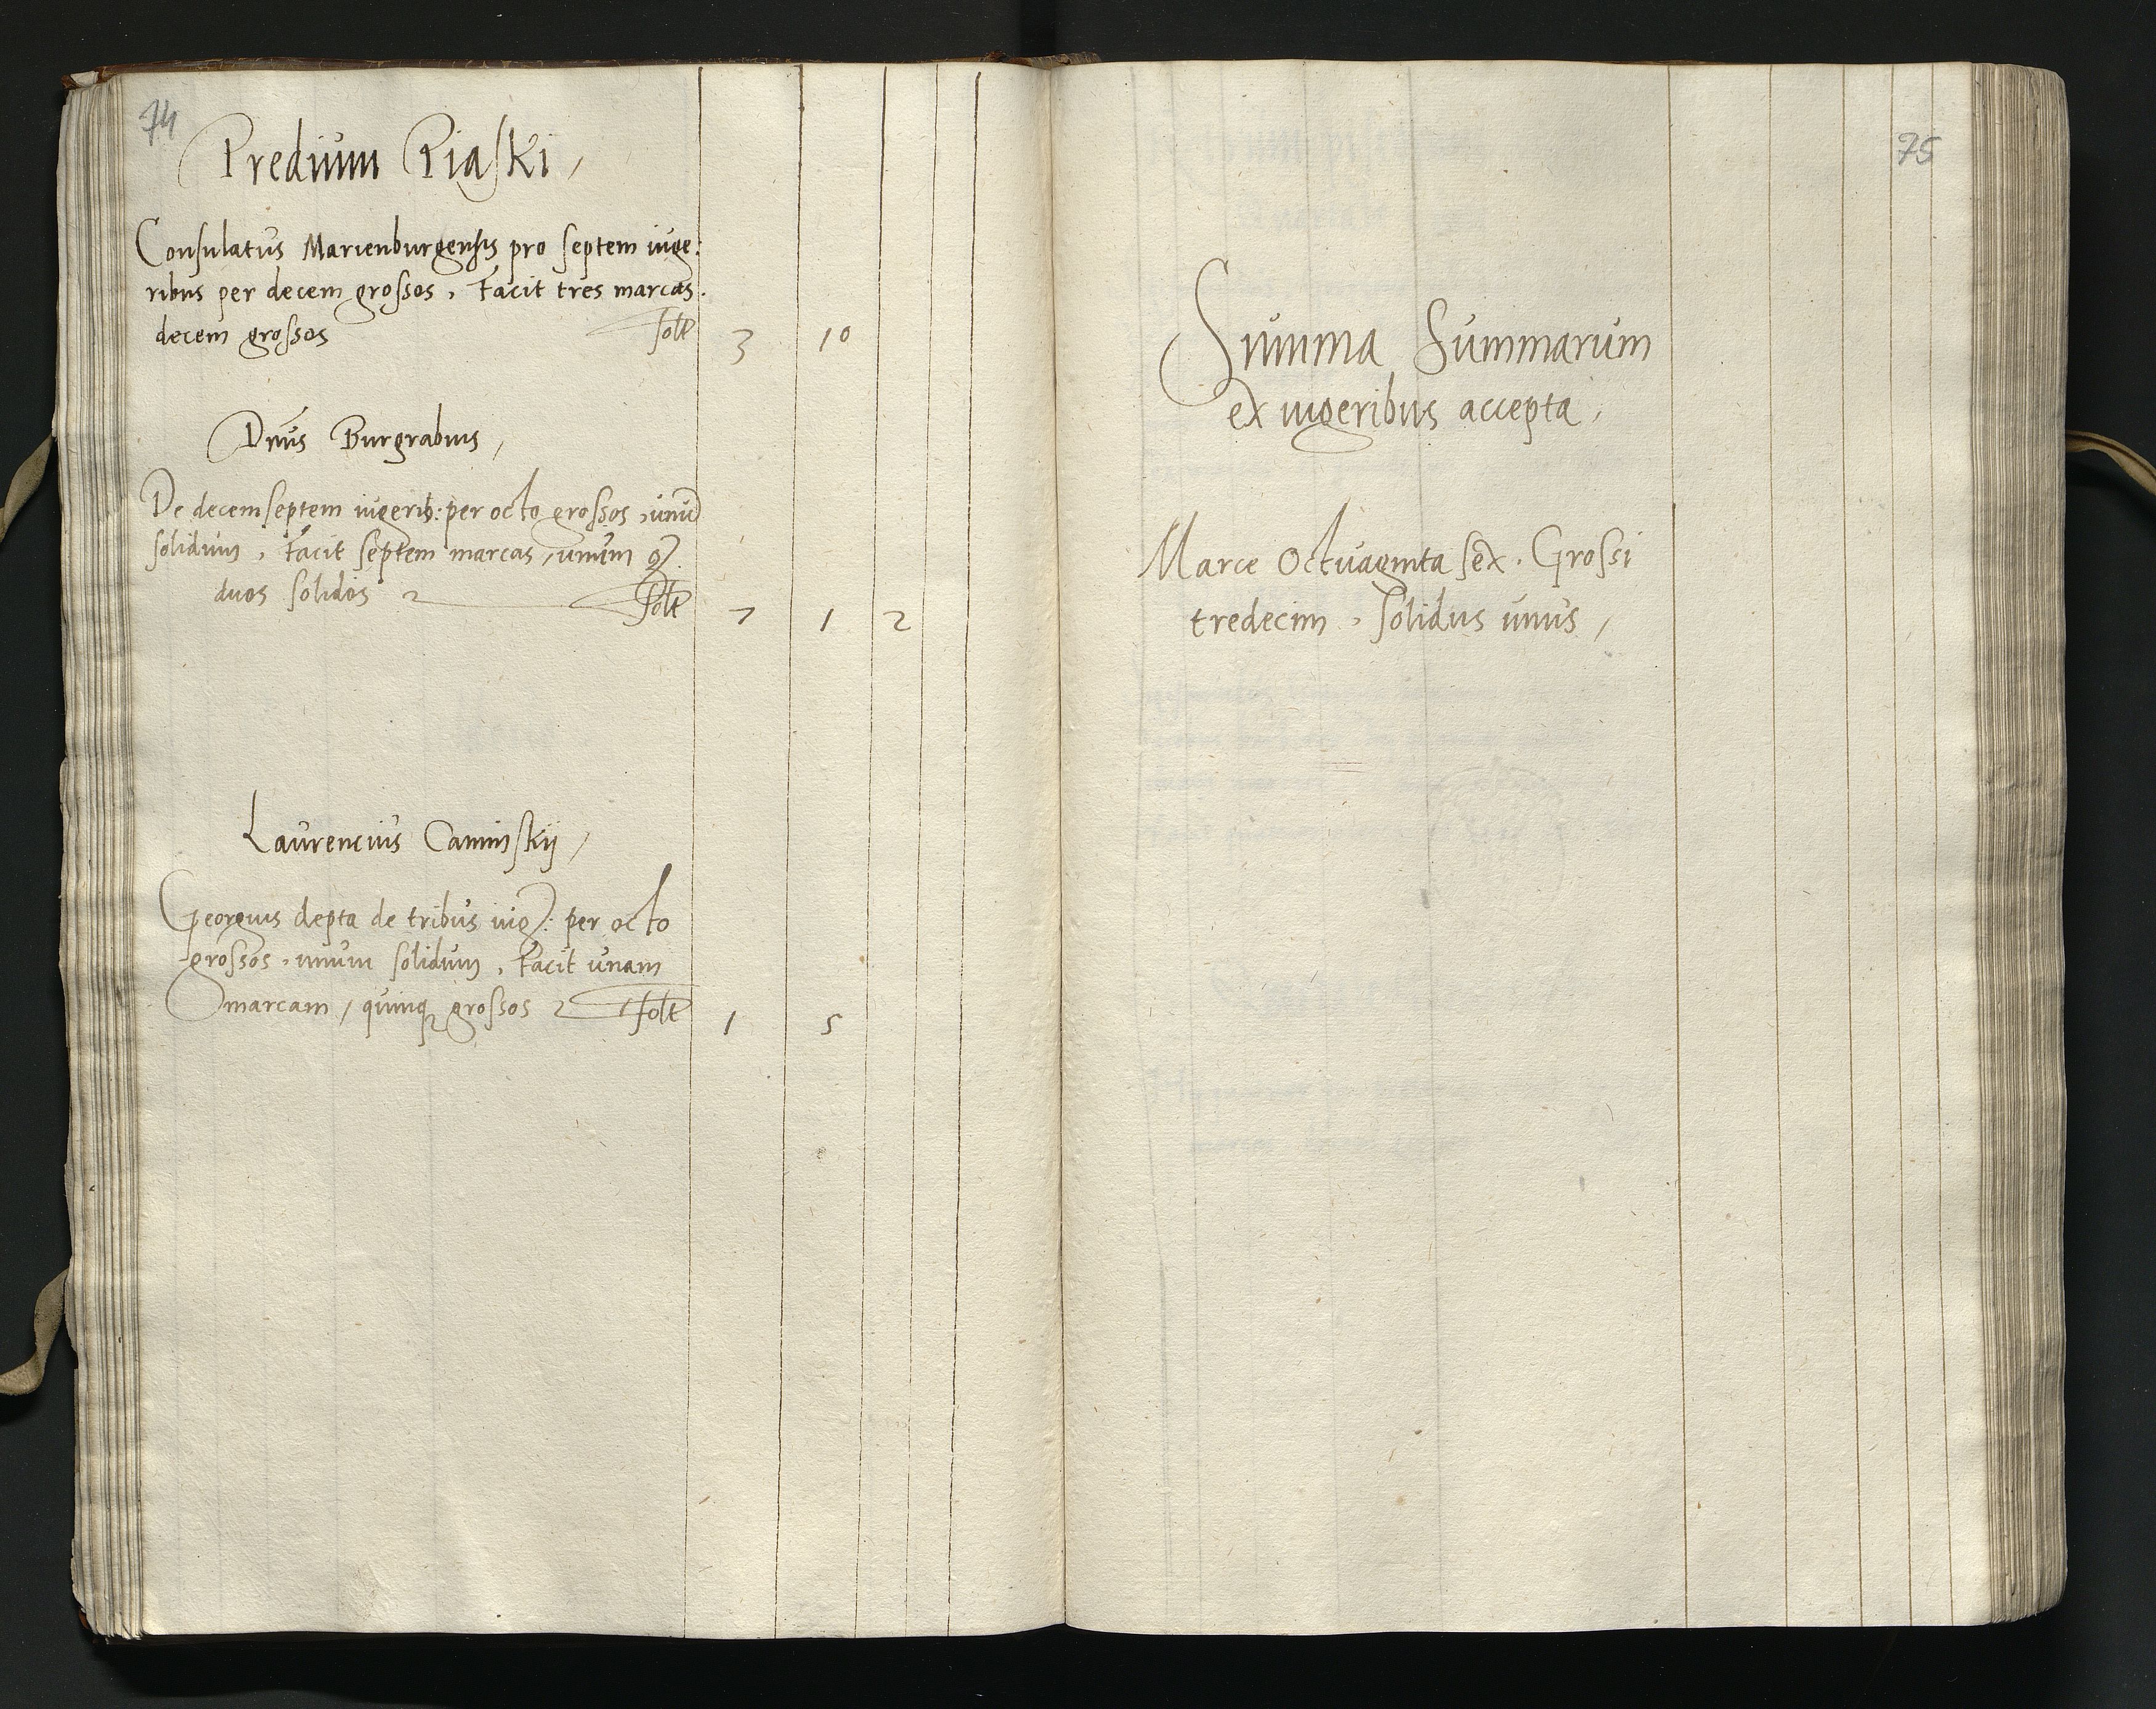 74
Predium Piaski,
Consulatus Marienburgensis pro septem iuge:
ribus per decem grossos, Facit tres marcas.
decem grossos solt 3 10
Dnus Burgrabius,
De decemseptem iugerib: per octo grossos, unu
solidum, Facit septem marcas, unum g.
duos solidos solt 7 1 2
Laurencius Caminskij,
Georgius depta de tribus iug: per octo
grossos, unum solidum, Facit unam
marcam, quinq grossos solt 1 5
75
Summa Summarum
ex iugeribus accepta,
Marce Octuaginta sex. Grossi
tredecim, solidus unus,